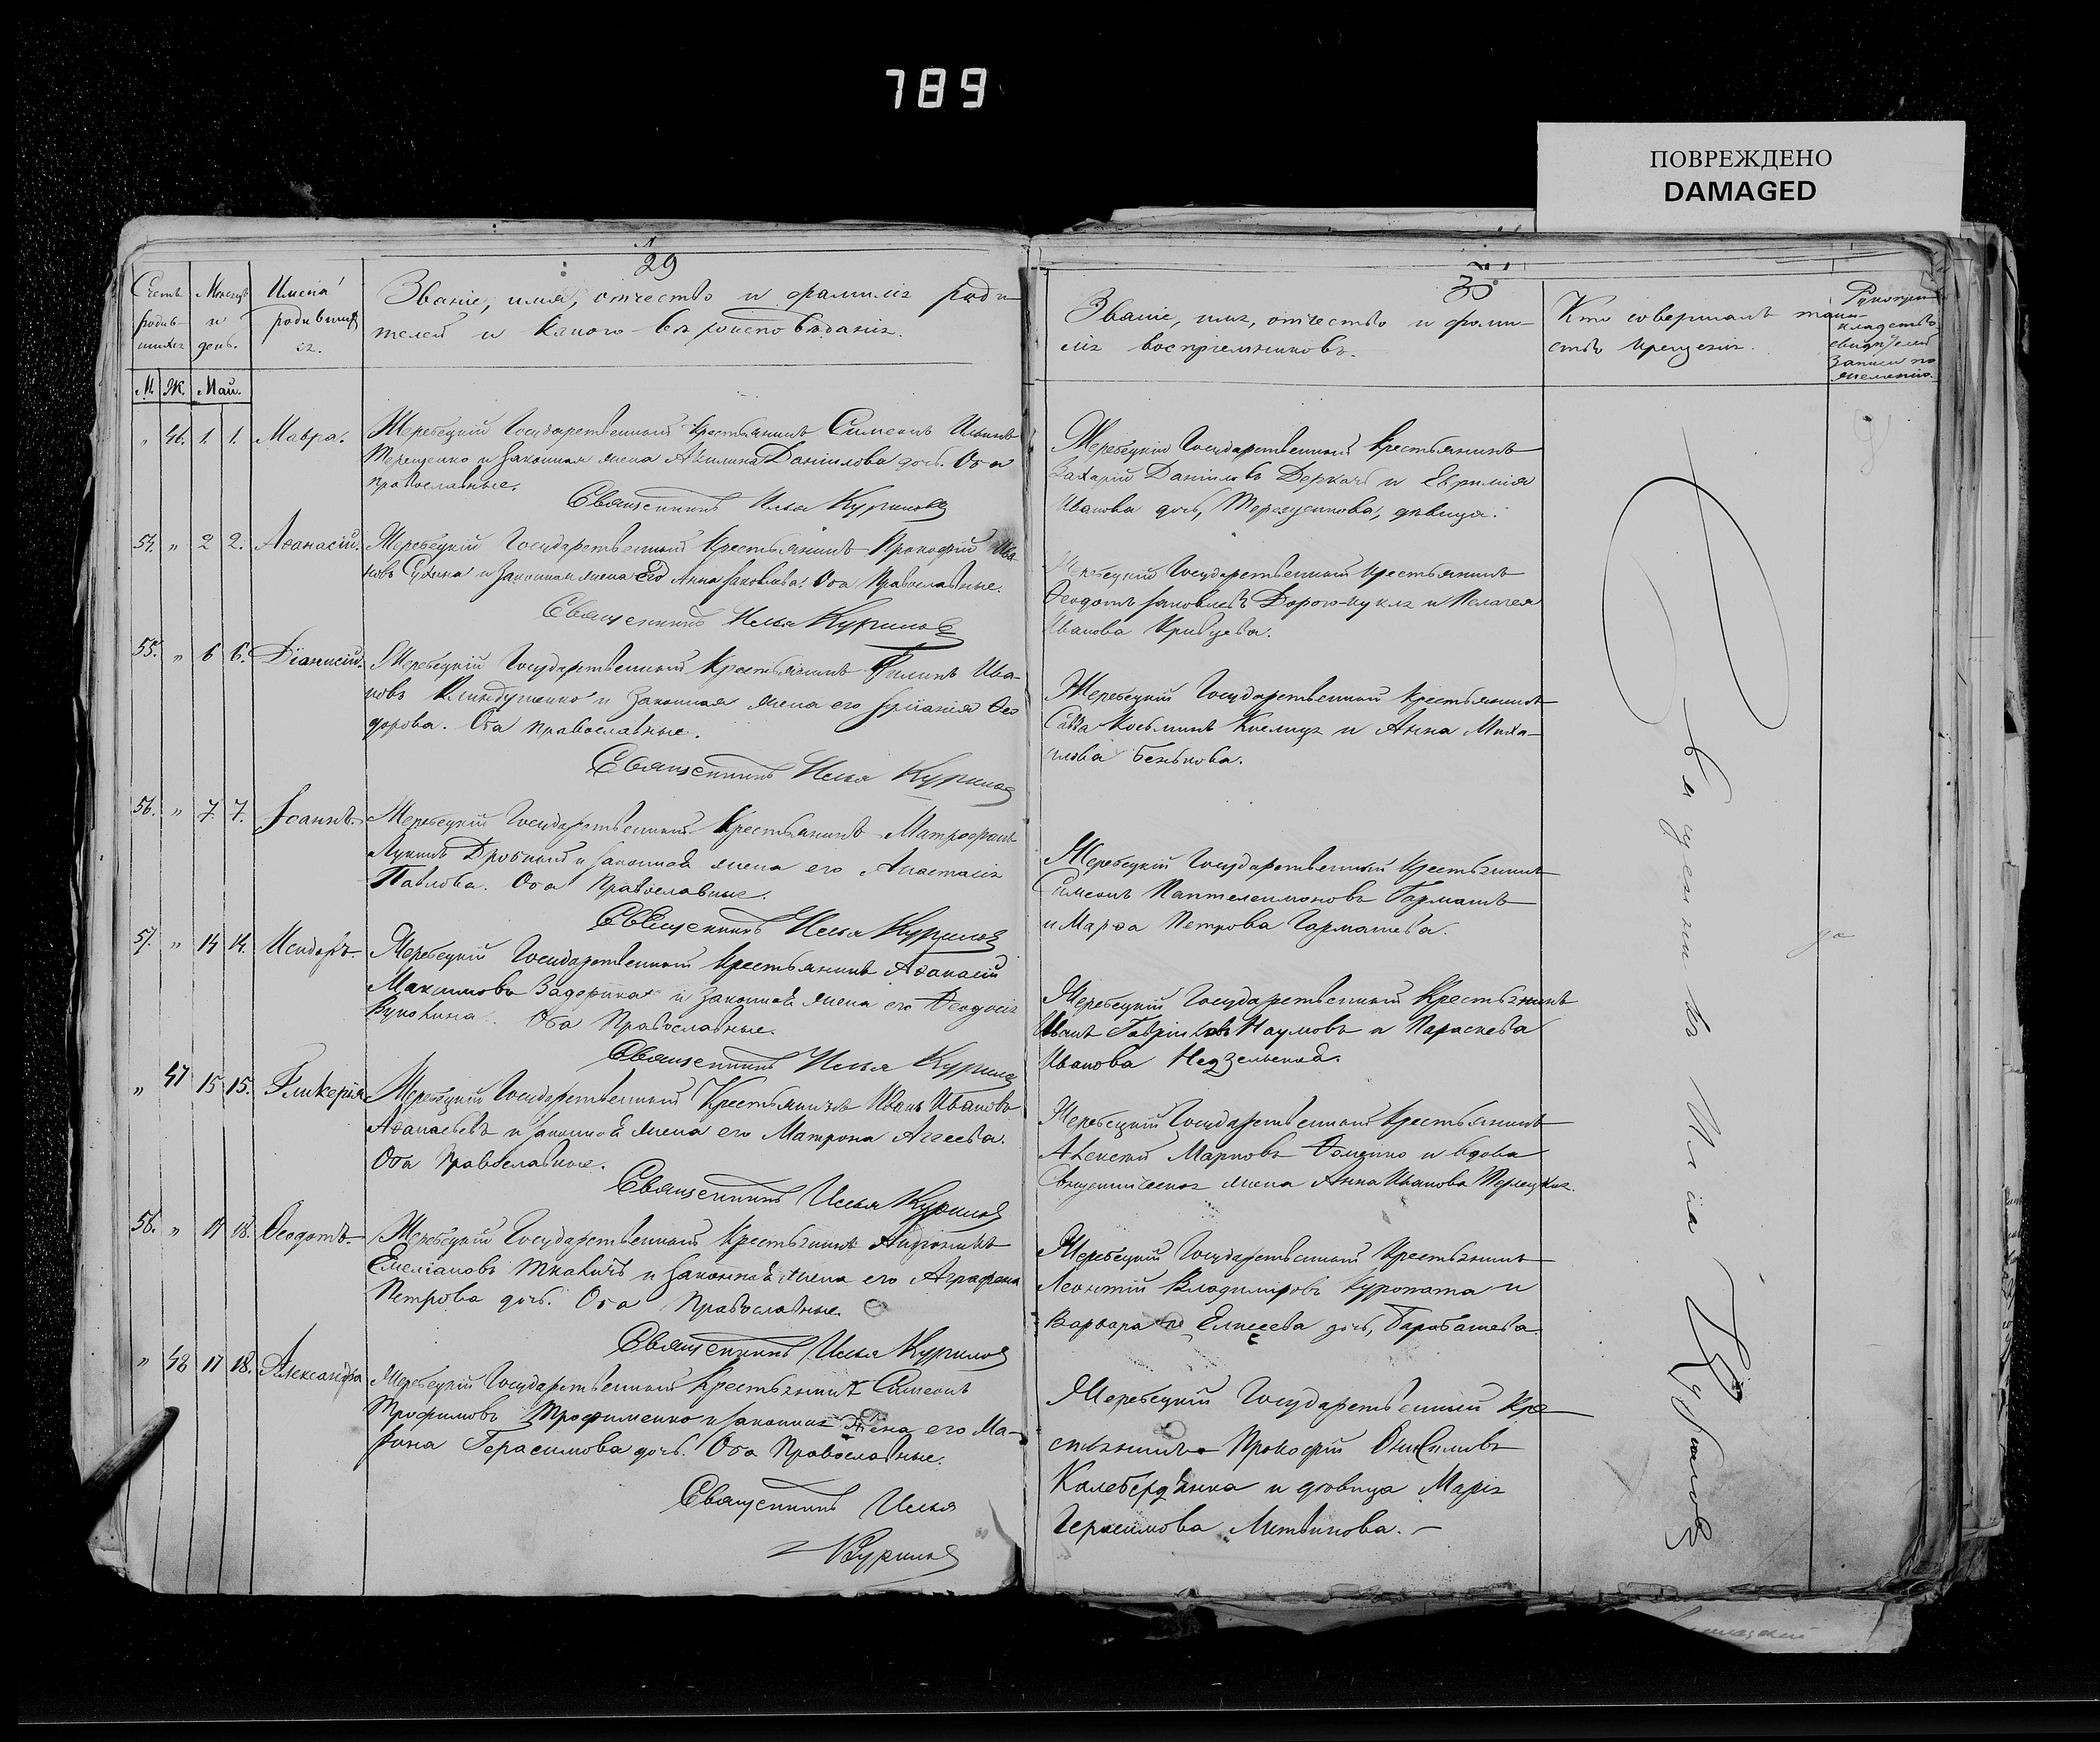 789
ПОВРЕЖДЕНО
DAMAGED
29
Счетъ родив-шихся
Мѣсяцъ и день.
Имена родившихся.
Званіе, имя, отчество и фамилія роди-
телей и какого вѣроисповѣданія.
М. Ж. Май.
" 46. 1. 1. Мавра.
Жеребецкій Государственный крестьянинъ Симеонъ Ильинъ
Терещенко и законная жена Акилина Даніилова дочь. Оба
православные.
Священникъ Илья Куриловъ
54. " 2 2. Аѳанасій.
Жеребецкій Государственный крестьянинъ Прокофій Ива-
новъ Сухина и законная жена Его Анна Іаковлева. Оба Православные.
Священникъ Илья Куриловъ
55. " 6 6. Діанисій.
Жеребецкій Государственный крестьянинъ Филипъ Ива-
новъ и законная жена его Ѳео
дорова. Оба православные.
Священникъ Илья Куриловъ
56. " 7. 7. Іоаннъ.
Жеребецкій Государственный Крестьянинъ Митрофанъ
Лукинъ Дробный и законная жена его Анастасія
Павлова. Оба Православные.
Священникъ Илья Куриловъ
57. " 14 14. Исидоръ.
Жеребецкій Государственный крестьянинъ Аѳанасій
Максимовъ Задерика и законная жена его Ѳеодосія
Оба Православные.
Священникъ Илья Куриловъ
" 47 15 15. Гликерія
Жеребецкій Государственный Крестьянинъ Иванъ Ивановъ
Аѳанасьевъ и законная жена его Матрона Аггеева.
Оба Православные.
Священникъ Илья Куриловъ
58. " 17 18. Ѳеодотъ.
Жеребецкій Государственный крестьянинъ Андроникъ
Емеліановъ Ткачичъ и законная жена его Аграфена
Петрова дочь. Оба Православные.
Священникъ Илья Куриловъ
" 48 17 18. Александра
Жеребецкій Государственный крестьянинъ Симеонъ
Трофимовъ Трофименко и законная жена его Ма-
рина Герасимова дочь. Оба Православные.
Священникъ Илья
Куриловъ
30
Званіе, имя, отчество и фами-
лія воспріемниковъ.
Кто совершалъ таин-
ство крещенія.
Рукопри-
кладство
свидѣтелей
записи по
желанію.
Жеребецкій Государственный крестьянинъ
Захарій Даніиловъ Деркачъ и Евфимія
Иванова дочь, Терещенкова, дѣвица.
Жеребецкій Государственный крестьянинъ
Ѳеодотъ Іаковлевъ и Пелагея
Иванова Кривцева.
Жеребецкій Государственный крестьянинъ
Савва Косьминъ и Анна Миха-
илова Бенькова.
Жеребецкій Государственный крестьянинъ
Симеонъ Пантелеимоновъ Гармашъ
и Марѳа Петрова Гармашева.
Жеребецкій Государственный Крестьянинъ
Иванъ Гавріиловъ Наумовъ и Параскева
Иванова
Жеребецкій Государственный крестьянинъ
Алексѣй Марковъ Ѳоменко и вдова
Священническая жена Анна Иванова
Жеребецкій Государственный Крестьянинъ
Леонтій Владиміровъ Куропата и
Варвара Елисеева дочь, Барабашева.
Жеребецкій Государственный Кре
стьянинъ Прокофій Онисимовъ
Колебердянка и дѣвица Марія
Герасимова Литвинова.
Священникъ Илія Куриловъ